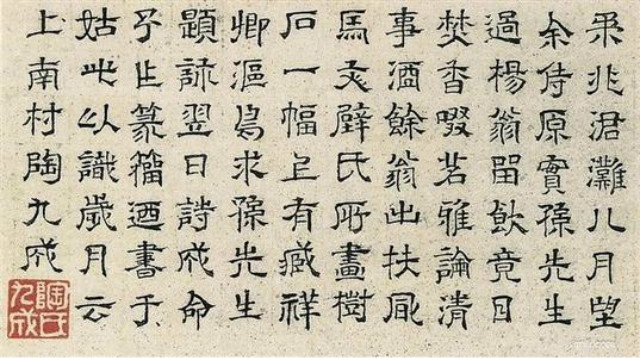 柔兆涒灘八月望
余侍原實孫先生
過楊翁留飲竟日
焚香啜茗雅論清
事酒餘翁出扶風
馬文璧氏所畫樹
石一幅上有臧祥
卿漚為求孫先生
題詠翌日詩成命
予作篆籀迺書于
姑此以識歲月云
上南村陶九成
陶氏九成